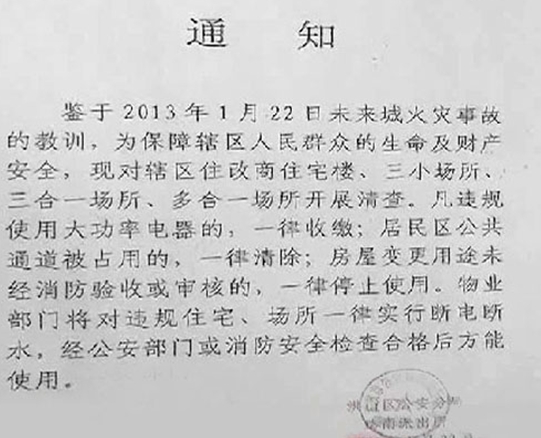 通 知
鉴于2013年1月22日未来城火灾事故
的教训，为保障辖区人民群众的生命及财产
安全，现对辖区住改商住宅楼、三小场所、
三合一场所、多合一场所开展清查。凡违规
使用大功率电器的，一律收缴；居民区公共
通道被占用的，一律清除；房屋变更用途未
经消防验收或审核的，一律停止使用。物业
部门将对违规住宅、场所一律实行断电断
水，经公安部门或消防安全检查合格后方能
使用。
区公安分
南派出所